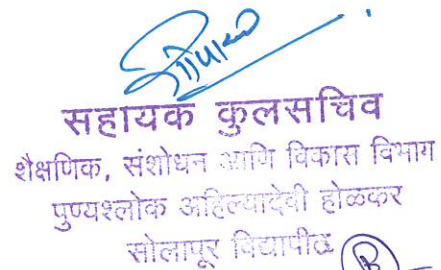 सहायक कुलसचिव
शैक्षणिक, संशोधन आणि विकास विभाग
पुण्यश्लोक अहिल्यादेवी होळकर
सोलापूर विद्यापीठ
B